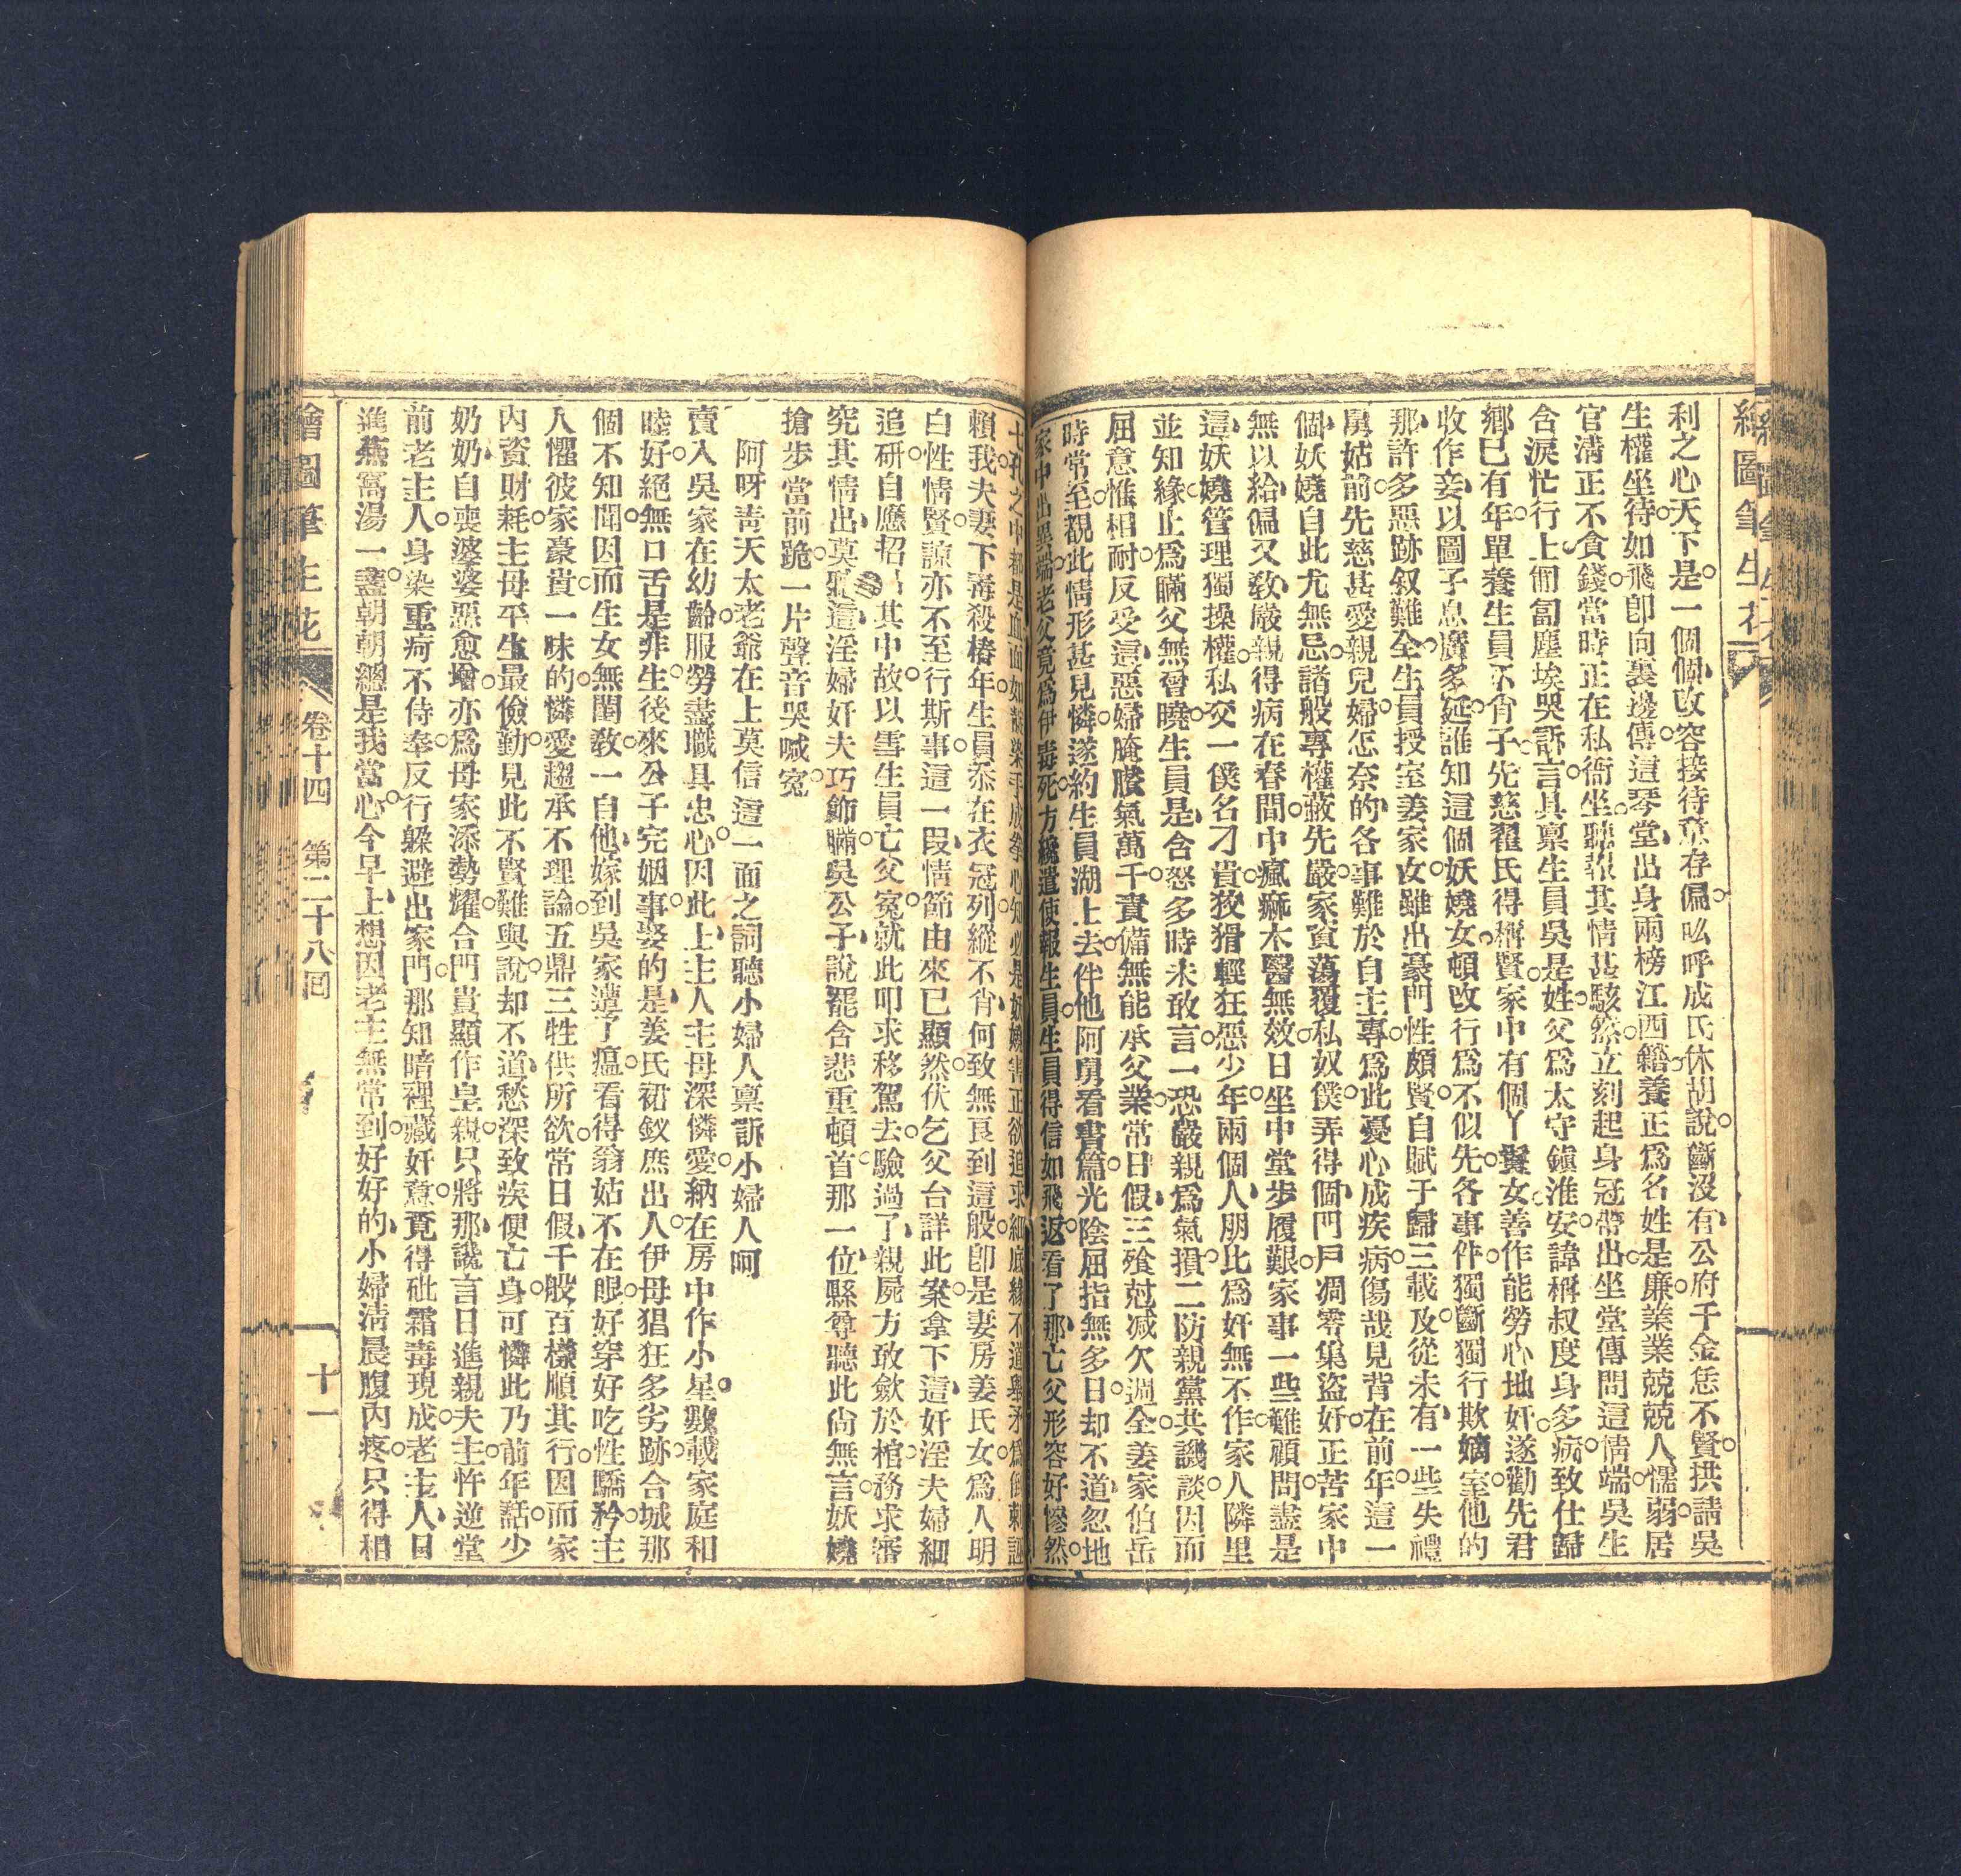 繪圖筆生花
利之心天下是一個個改容接待章存偏吆呼成氏休胡說斷沒有公府千金恁不賢拱請吳
生權坐待如飛卽向裏邊傳這琴堂出身兩榜江西籍養正爲名姓是廉業業兢兢人懦弱居
官淸正不貪錢當時正在私衙坐聽報其情甚駭然立刻起身冠帶出坐堂傳問這情端吳生
含淚忙行上匍匐塵埃哭訴言具稟生員吳是姓父爲太守鎭淮安諱稱叔度身多病致仕歸
鄉已有年單養生員不肖子先慈翟氏得稱賢家中有個丫鬟女善作能勞心地奸遂勸先君
收作妾以圖子息廣多延誰知這個妖嬈女頓改行爲不似先各事件獨斷獨行欺嫡室他的
那許多惡跡叙難全生員授室姜家女雖出豪門性頗賢自賦于歸三載及從未有一些失禮
舅姑前先慈甚愛親兒婦怎奈的各事難於自主專爲此憂心成疾病傷哉見背在前年這一
個妖嬈自此尤無忌諸般專權蔽先嚴家資蕩覆私奴僕弄得個門戶凋零集盜奸正苦家中
無以給偏又敎嚴親得病在春間中瘋痲木醫無效日坐中堂步履艱家事一些難顧問盡是
這妖嬈管理獨操權私交一僕名刁貴狡猾輕狂惡少年兩個人朋比爲奸無不作家人隣里
並知緣止爲瞞父無曾曉生員是含怒多時未敢言一恐嚴親爲氣損二防親黨共譏談因而
屈意惟相耐反受這惡婦腌臢氣萬千責備無能承父業常日假三飱尅減欠週全姜家伯岳
時常至覩此情形甚見憐遂約生員湖上去伴他阿舅看書篇光陰屈指無多日却不道忽地
家中出異端老父竟爲伊毒死方纔遣使報生員生員得信如飛返看了那亡父形容好慘然
賴我夫妻下毒殺椿年生員忝在衣冠列縱不肖何致無良到這般卽是妻房姜氏女爲人明
白性情賢諒亦不至行斯事這一段情節由來已顯然伏乞父台詳此案拿下這奸淫夫婦細
追研自應招 其中故以雪生員亡父寃就此叩求移駕去驗過了親屍方敢歛於棺務求審
究其情出莫 這淫婦奸夫巧飾瞞吳公子說罷含悲重頓首那一位縣尊聽此尙無言妖嬈
搶步當前跪一片聲音哭喊寃
阿呀靑天太老爺在上莫信這一面之詞聽小婦人稟訴小婦人呵
賣入吳家在幼齡服勞盡職具忠心因此上主人主母深憐愛納在房中作小星數載家庭和
睦好絕無口舌是非生後來公子完姻事娶的是姜氏裙釵庶出人伊母猖狂多劣跡合城那
個不知聞因而生女無閨敎一自他嫁到吳家遭了瘟看得翁姑不在眼好穿好吃性驕矜主
人懼彼家豪貴一味的憐愛趨承不理論五鼎三牲供所欲常日假千般百樣順其行因而家
內資財耗主母平生最儉勤見此不賢難與說却不道愁深致疾便亡身可憐此乃前年話少
奶奶自喪婆婆惡愈增亦爲母家添勢耀合門貴顯作皇親只將那讒言日進親夫主忤逆堂
前老主人身染重疴不侍奉反行躲避出家門那知暗裡藏奸意竟得砒霜毒現成老主人日
進燕窩湯一盞朝朝總是我當心今早上想因老主無常到好好的小婦淸晨腹內疼只得相
繪圖筆生花
卷十四 第二十八回
十一